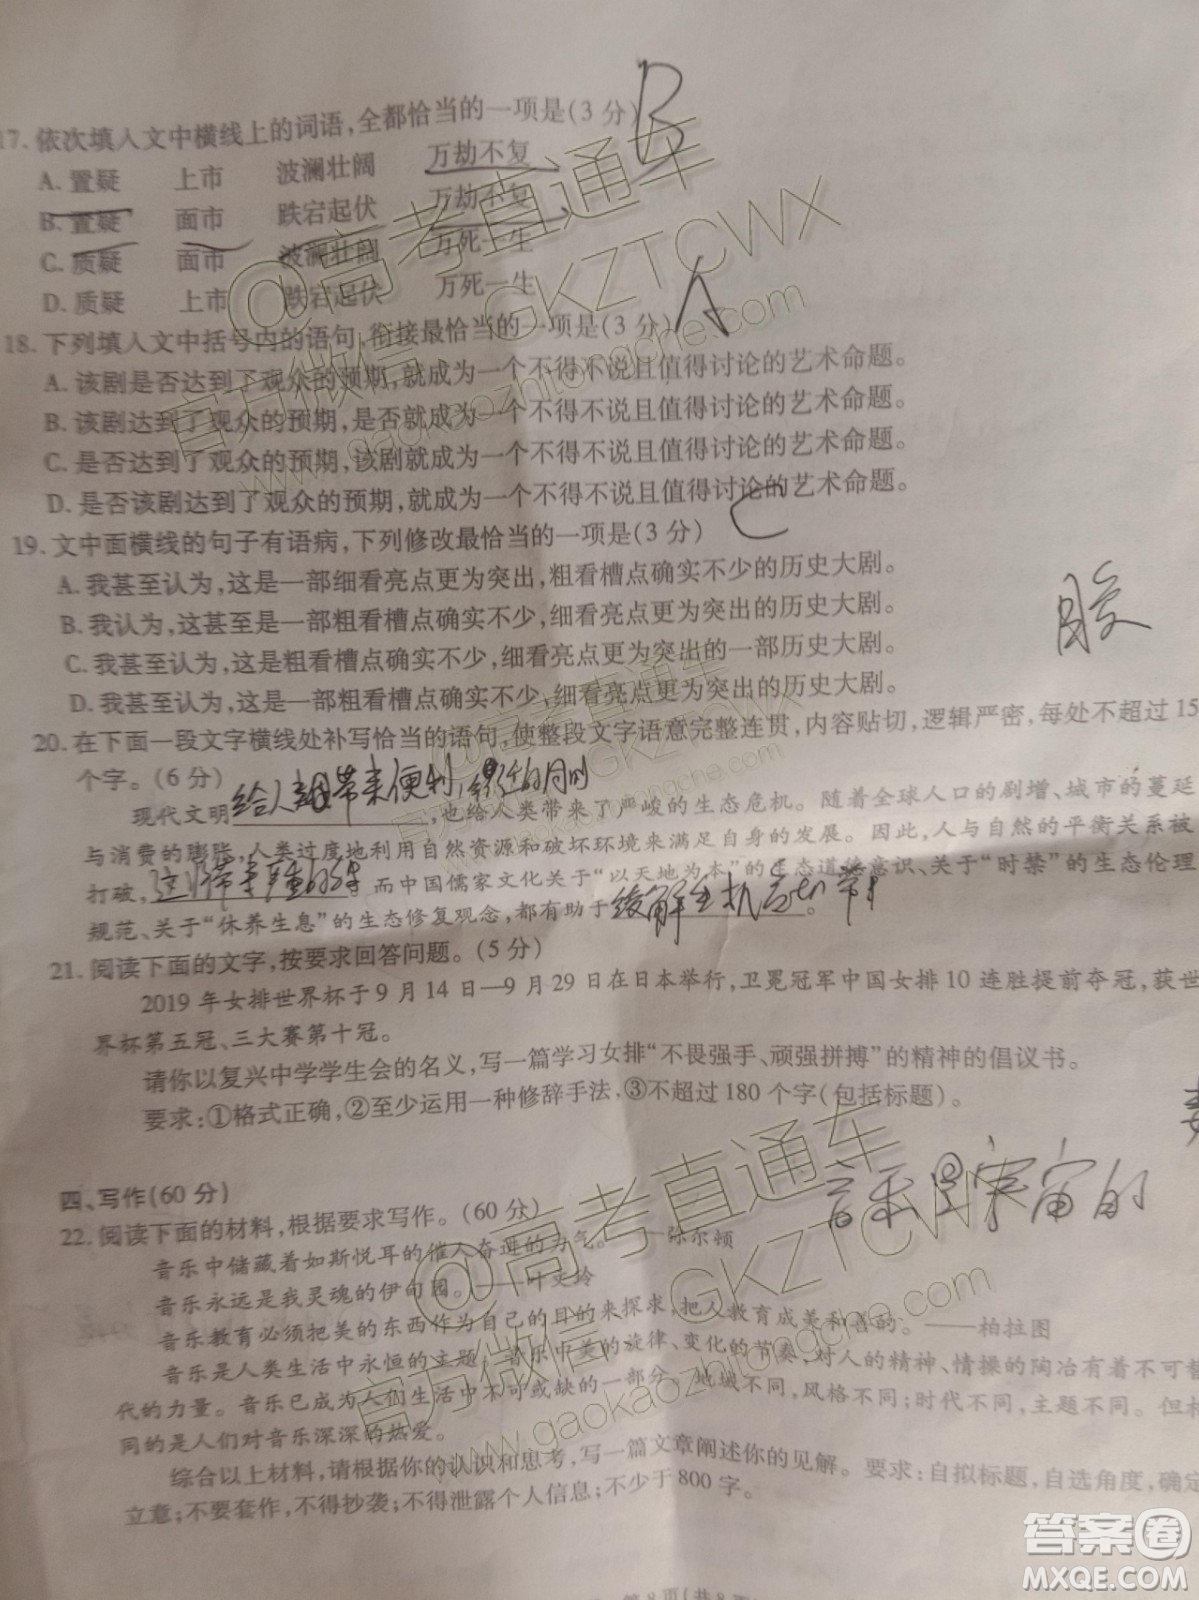 17.依次填入文中横线上的词语,全都恰当的一项是(3分) B
A.置疑 上市 波澜壮阔 万劫不复
B.置疑 面市 跌宕起伏 万劫不复
C.质疑 面市 波澜壮阔 万死一生
D.质疑 上市 跌宕起伏 万死一生
18.下列填入文中括号内的语句,衔接最恰当的一项是(3分) A
A.该剧是否达到了观众的预期,就成为一个不得不说且值得讨论的艺术命题。
B.该剧达到了观众的预期,是否就成为一个不得不说且值得讨论的艺术命题。
C.是否达到了观众的预期,该剧就成为一个不得不说且值得讨论的艺术命题。
D.是否该剧达到了观众的预期,就成为一个不得不说且值得讨论的艺术命题。
19.文中画横线的句子有语病,下列修改最恰当的一项是(3分) C
A.我甚至认为,这是一部细看亮点更为突出,粗看槽点确实不少的历史大剧。
B.我认为,这甚至是一部粗看槽点确实不少,细看亮点更为突出的历史大剧。
C.我甚至认为,这是粗看槽点确实不少,细看亮点更为突出的一部历史大剧。
D.我甚至认为,这是一部粗看槽点确实不少,细看亮点更为突出的历史大剧。
20.在下面一段文字横线处补写恰当的语句,使整段文字语意完整连贯,内容贴切,逻辑严密,每处不超过15
个字。(6分)
现代文明给人类带来便利 的同时,也给人类带来了严峻的生态危机。随着全球人口的剧增、城市的蔓延
与消费的膨胀,人类过度地利用自然资源和破坏环境来满足自身的发展。因此,人与自然的平衡关系被
打破,这将带来 。而中国儒家文化关于“以天地为本”的生态道德意识、关于“时禁”的生态伦理
规范、关于“休养生息”的生态修复观念,都有助于缓解生 。
21.阅读下面的文字,按要求回答问题。(5分)
2019年女排世界杯于9月14日—9月29日在日本举行,卫冕冠军中国女排10连胜提前夺冠,获世
界杯第五冠、三大赛第十冠。
请你以复兴中学学生会的名义,写一篇学习女排“不畏强手、顽强拼搏”的精神的倡议书。
要求:①格式正确,②至少运用一种修辞手法,③不超过180个字(包括标题)。
四、写作(60分)
22.阅读下面的材料,根据要求写作。(60分)
音乐是宇宙的
音乐中储藏着如斯悦耳的催人奋进的力气。——弥尔顿
音乐永远是我灵魂的伊甸园。——叶天玲
音乐教育必须把美的东西作为自己的目的来探求,把人教育成美和善的。——柏拉图
音乐是人类生活中永恒的主题,音乐中美的旋律、变化的节奏,对人的精神、情操的陶冶有着不可替
代的力量。音乐已成为人们生活中不可或缺的一部分。地域不同,风格不同;时代不同,主题不同。但相
同的是人们对音乐深深的热爱。
综合以上材料,请根据你的认识和思考,写一篇文章阐述你的见解。要求:自拟标题,自选角度,确定
立意;不要套作,不得抄袭;不得泄露个人信息;不少于800字。
第8页(共8页)
@高考直通车
官方微信:GKZTCWX
www.gaokaozhitongche.com
@高考直通车
官方微信:GKZTCWX
www.gaokaozhitongche.com
答案圈
MXQE.COM